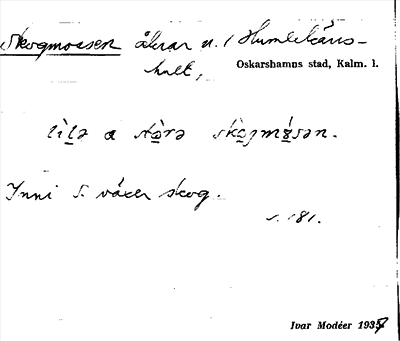 Skogmossen åkrar n. / Humlekärrs-
hult,
Oskarshamns stad, Kalm. l.
lìlə a stòrə skògmósən.
Inni S. växer skog.
s. 181.
Ivar Modéer 1937